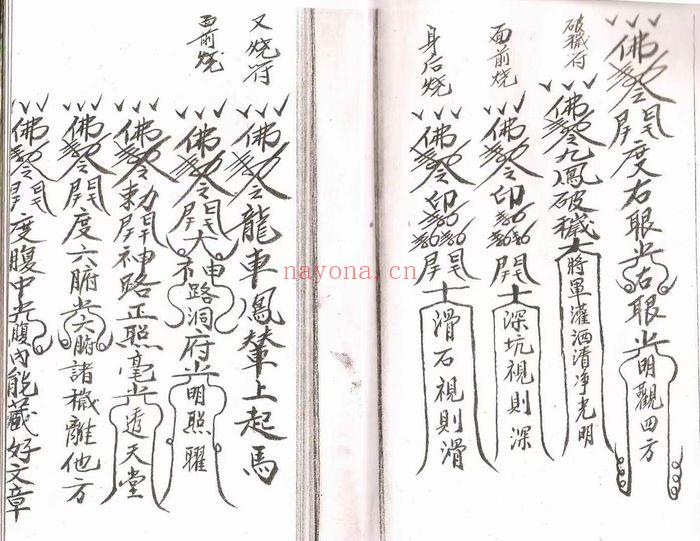 佛令開度右眼光右眼光明觀四方
破穢符
佛令九鳳破穢大將軍灑洒清净光明
面前燒
佛令印開 深坑視則深
身后燒
佛令印開 滑石視則滑
又燒符
佛令龍車鳳輦上起馬
面前燒
佛令開大神路洞府光明照耀
佛令勅開神路正照毫光透天堂
佛令開度六腑光六腑諸穢離他方
佛令開度腹中光腹内能藏好文章
nayona.cn